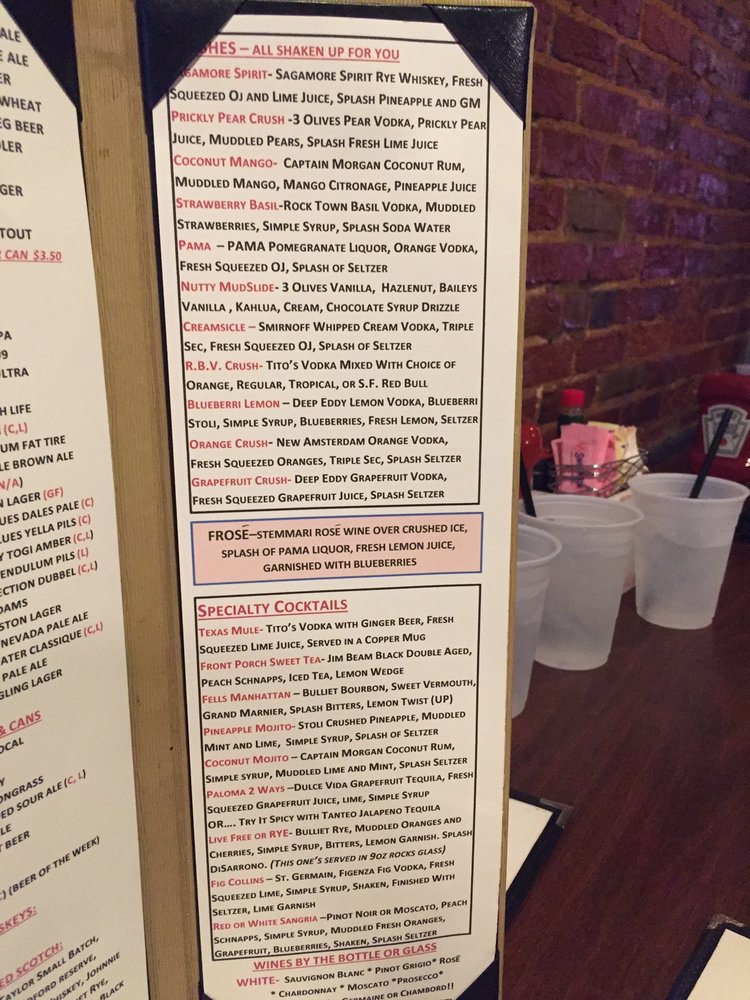 ALE
ALE
WHEAT
EG BEER
LER
GER
TOUT
CAN $3.50
PA
9
LTRA
H LIFE
(C,L)
UM FAT TIRE
LE BROWN ALE
N/A)
N LAGER (GF)
UES DALES PALE (C)
UES YELLA PILS (C)
Y TOGI AMBER (C,L)
ENDULUM PILS (L)
ECTION DUBBEL (C,L)
DAMS
STON LAGER
NEVADA PALE ALE
ATER CLASSIQUE (C,L)
PALE ALE
GLING LAGER
& CANS
OCAL
Y
ONGRASS
ED SOUR ALE (C, L)
LE
T BEER
C) (BEER OF THE WEEK)
SKEYS:
ED SCOTCH:
TAYLOR SMALL BATCH,
FORD RESERVE,
HISKEY, JOHNNIE
ET RYE,
BLACK
SHES – ALL SHAKEN UP FOR YOU
AGAMORE SPIRIT- SAGAMORE SPIRIT RYE WHISKEY, FRESH
SQUEEZED OJ AND LIME JUICE, SPLASH PINEAPPLE AND GM
PRICKLY PEAR CRUSH -3 OLIVES PEAR VODKA, PRICKLY PEAR
JUICE, MUDDLED PEARS, SPLASH FRESH LIME JUICE
COCONUT MANGO- CAPTAIN MORGAN COCONUT RUM,
MUDDLED MANGO, MANGO CITRONAGE, PINEAPPLE JUICE
STRAWBERRY BASIL-ROCK TOWN BASIL VODKA, MUDDLED
STRAWBERRIES, SIMPLE SYRUP, SPLASH SODA WATER
PAMA – PAMA POMEGRANATE LIQUOR, ORANGE VODKA,
FRESH SQUEEZED OJ, SPLASH OF SELTZER
NUTTY MUDSLIDE- 3 OLIVES VANILLA, HAZLENUT, BAILEYS
VANILLA , KAHLUA, CREAM, CHOCOLATE SYRUP DRIZZLE
CREAMSICLE – SMIRNOFF WHIPPED CREAM VODKA, TRIPLE
SEC, FRESH SQUEEZED OJ, SPLASH OF SELTZER
R.B.V. CRUSH- TITO'S VODKA MIXED WITH CHOICE OF
ORANGE, REGULAR, TROPICAL, OR S.F. RED BULL
BLUEBERRI LEMON – DEEP EDDY LEMON VODKA, BLUEBERRI
STOLI, SIMPLE SYRUP, BLUEBERRIES, FRESH LEMON, SELTZER
ORANGE CRUSH- NEW AMSTERDAM ORANGE VODKA,
FRESH SQUEEZED ORANGES, TRIPLE SEC, SPLASH SELTZER
GRAPEFRUIT CRUSH- DEEP EDDY GRAPEFRUIT VODKA,
FRESH SQUEEZED GRAPEFRUIT JUICE, SPLASH SELTZER
FROSÉ–STEMMARI ROSÉ WINE OVER CRUSHED ICE,
SPLASH OF PAMA LIQUOR, FRESH LEMON JUICE,
GARNISHED WITH BLUEBERRIES
SPECIALTY COCKTAILS
TEXAS MULE- TITO'S VODKA WITH GINGER BEER, FRESH
SQUEEZED LIME JUICE, SERVED IN A COPPER MUG
FRONT PORCH SWEET TEA- JIM BEAM BLACK DOUBLE AGED,
PEACH SCHNAPPS, ICED TEA, LEMON WEDGE
FELLS MANHATTAN – BULLIET BOURBON, SWEET VERMOUTH,
GRAND MARNIER, SPLASH BITTERS, LEMON TWIST (UP)
PINEAPPLE MOJITO- STOLI CRUSHED PINEAPPLE, MUDDLED
MINT AND LIME, SIMPLE SYRUP, SPLASH OF SELTZER
COCONUT MOJITO – CAPTAIN MORGAN COCONUT RUM,
SIMPLE SYRUP, MUDDLED LIME AND MINT, SPLASH SELTZER
PALOMA 2 WAYS –DULCE VIDA GRAPEFRUIT TEQUILA, FRESH
SQUEEZED GRAPEFRUIT JUICE, LIME, SIMPLE SYRUP
OR.... TRY IT SPICY WITH TANTEO JALAPENO TEQUILA
LIVE FREE OR RYE- BULLIET RYE, MUDDLED ORANGES AND
CHERRIES, SIMPLE SYRUP, BITTERS, LEMON GARNISH. SPLASH
DISARRONO. (THIS ONE'S SERVED IN 9OZ ROCKS GLASS)
FIG COLLINS – ST. GERMAIN, FIGENZA FIG VODKA, FRESH
SQUEEZED LIME, SIMPLE SYRUP, SHAKEN, FINISHED WITH
SELTZER, LIME GARNISH
RED OR WHITE SANGRIA –PINOT NOIR OR MOSCATO, PEACH
SCHNAPPS, SIMPLE SYRUP, MUDDLED FRESH ORANGES,
GRAPEFRUIT, BLUEBERRIES, SHAKEN, SPLASH SELTZER
WINES BY THE BOTTLE OR GLASS
WHITE- SAUVIGNON BLANC * PINOT GRIGIO* ROSÉ
* CHARDONNAY * MOSCATO *PROSECCO*
GERMAINE OR CHAMBORD!!
HEINZ